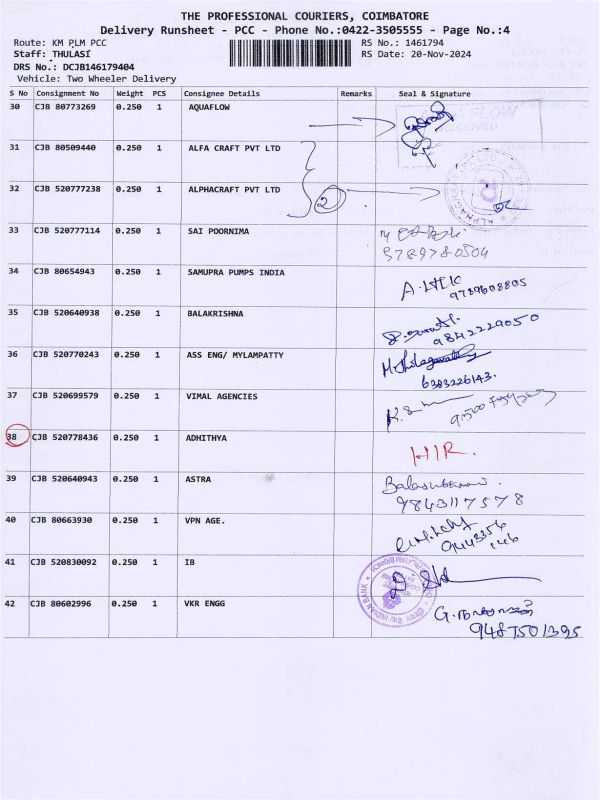 THE PROFESSIONAL COURIERS, COIMBATORE
Delivery Runsheet - PCC - Phone No.:0422-3505555 - Page No.:4
Route: KM PLM PCC RS No.: 1461794
Staff: THULASI RS Date: 20-Nov-2024
DRS No.: DCJB146179404
Vehicle: Two Wheeler Delivery
S No Consignment No Weight PCS Consignee Details Remarks Seal & Signature
30 CJB 80773269 0.250 1 AQUAFLOW
31 CJB 80509440 0.250 1 ALFA CRAFT PVT LTD
32 CJB 520777238 0.250 1 ALPHACRAFT PVT LTD 2
33 CJB 520777114 0.250 1 SAI POORNIMA
9789780504
34 CJB 80654943 0.250 1 SAMUPRA PUMPS INDIA
9789608805
35 CJB 520640938 0.250 1 BALAKRISHNA
9842229050
36 CJB 520770243 0.250 1 ASS ENG/ MYLAMPATTY
6383226143.
37 CJB 520699579 0.250 1 VIMAL AGENCIES
38 CJB 520778436 0.250 1 ADHITHYA
HIR.
39 CJB 520640943 0.250 1 ASTRA
9843117578
40 CJB 80663930 0.250 1 VPN AGE.
41 CJB 520830092 0.250 1 IB
INDIAN BANK
42 CJB 80602996 0.250 1 VKR ENGG
9487501395